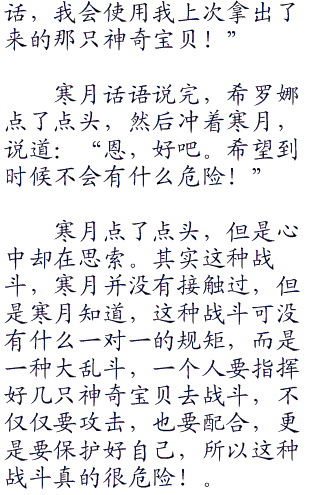 话，我会使用我上次拿出了
来的那只神奇宝贝！”
寒月话语说完，希罗娜
点了点头，然后冲着寒月，
说道：“恩，好吧。希望到
时候不会有什么危险！”
寒月点了点头，但是心
中却在思索。其实这种战
斗，寒月并没有接触过，但
是寒月知道，这种战斗可没
有什么一对一的规矩，而是
一种大乱斗，一个人要指挥
好几只神奇宝贝去战斗，不
仅仅要攻击，也要配合，更
是要保护好自己，所以这种
战斗真的很危险！。